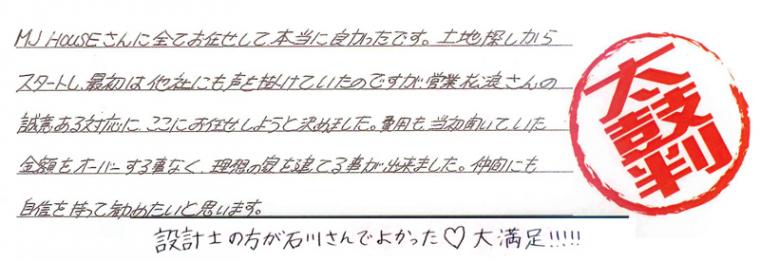 MJ HOUSEさんに全てお任せして本当に良かったです。土地探しから
スタートし、最初は他社にも声を掛けていたのですが営業松浪さんの
誠意ある対応に、ここにお任せしようと決めました。費用も、当初聞いていた
金額をオーバーする事なく、理想の家を建てる事が出来ました。仲間にも
自信を持って勧めたいと思います。
設計士の方が石川さんでよかった♡大満足!!!!!
太鼓判